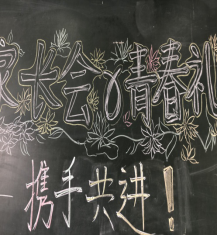 家长会〃青春礼
–携手共进！